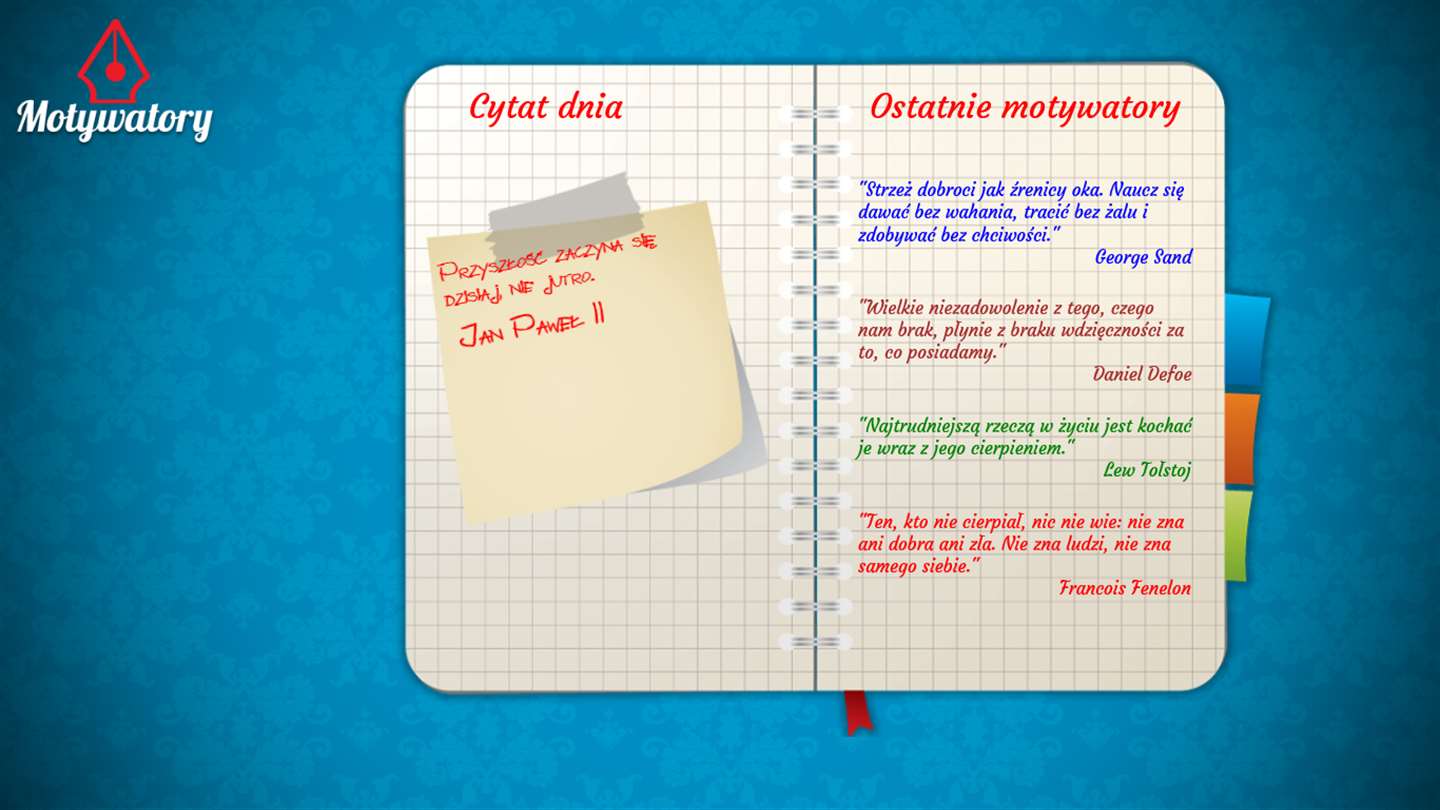 Motywatory
Cytat dnia
Przyszłość zaczyna się
dzisiaj, nie jutro.
Jan Paweł II
Ostatnie motywatory
"Strzeż dobroci jak źrenicy oka. Naucz się
dawać bez wahania, tracić bez żalu i
zdobywać bez chciwości."
George Sand
"Wielkie niezadowolenie z tego, czego
nam brak, płynie z braku wdzięczności za
to, co posiadamy."
Daniel Defoe
"Najtrudniejszą rzeczą w życiu jest kochać
je wraz z jego cierpieniem."
Lew Tołstoj
"Ten, kto nie cierpiał, nic nie wie: nie zna
ani dobra ani zła. Nie zna ludzi, nie zna
samego siebie."
Francois Fenelon